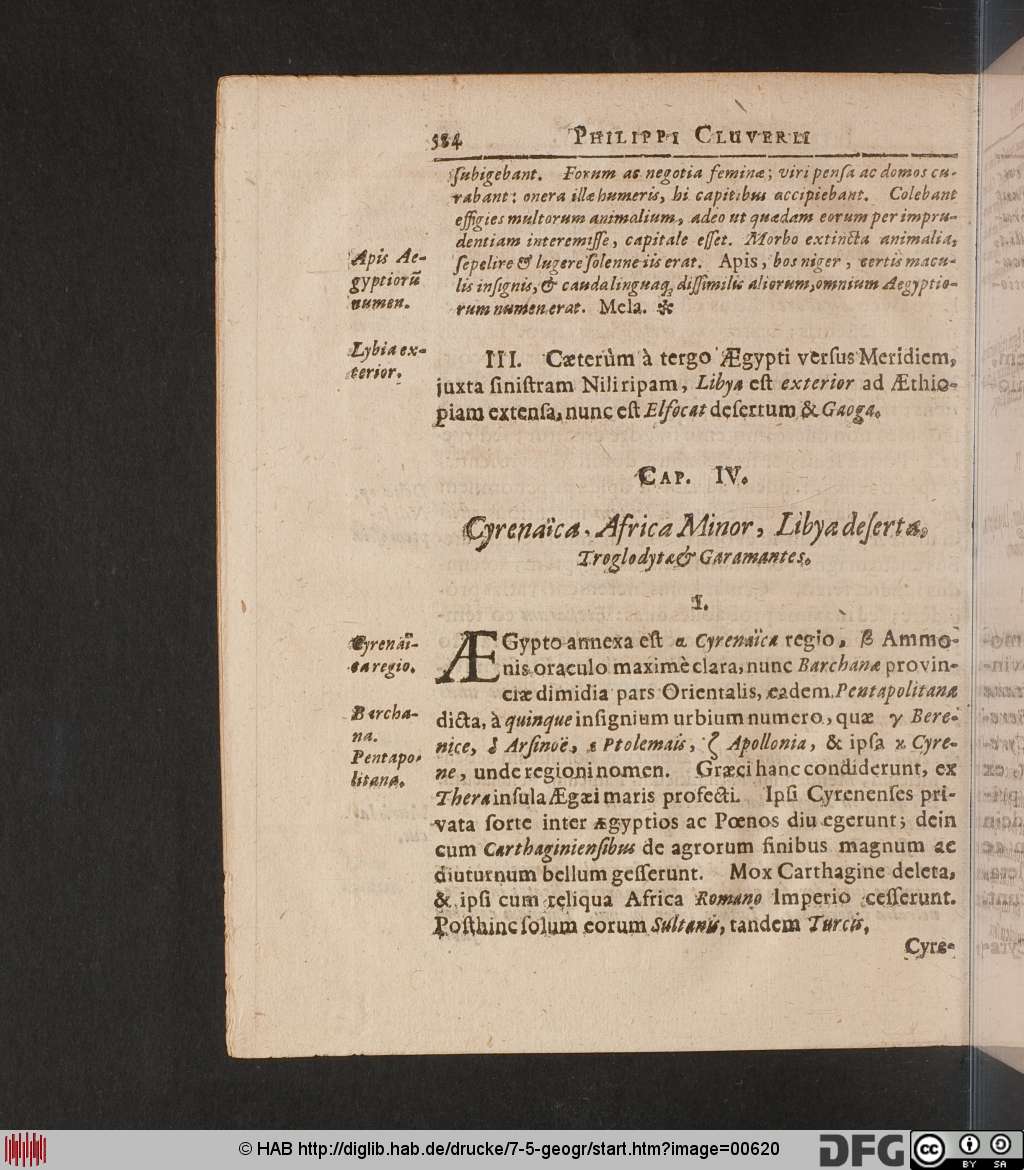 584 PHILIPPI CLUVERII
ſubigebant. Forum ac negotia feminæ; viri penſa ac domos cu-
rabant: onera illæ humeris, hi capitibus accipiebant. Colebant
effigies multorum animalium, adeo ut quædam eorum per impru-
dentiam interemiſſe, capitale eſſet. Morbo extincta animalia,
ſepelire & lugere ſolenne iis erat. Apis, bos niger, certis macu-
lis inſignis, & cauda linguaq; diſſimilis aliorum, omnium Aegyptio-
rum numen erat. Mela. ✻
Apis Ae-
gyptiorū
numen.
Lybia ex-
terior.
III. Cæterùm à tergo Ægypti verſus Meridiem,
juxta ſiniſtram Nili ripam, Libya eſt exterior ad Æthio-
piam extenſa, nunc eſt Elfocat deſertum & Gaoga.
CAP. IV.
Cyrenaïca. Africa Minor, Libya deſerta.
Troglodytæ & Garamantes.
I.
Cyrenaï-
ca regio.
Barcha-
na.
Pentapo-
litana.
ÆGypto annexa eſt α Cyrenaïca regio, β Ammo-
nis oraculo maximè clara, nunc Barchanæ provin-
ciæ dimidia pars Orientalis, eadem Pentapolitana
dicta, à quinque inſignium urbium numero, quæ γ Bere-
nice, δ Arſinoë, ε Ptolemais, ζ Apollonia, & ipſa ϰ Cyre-
ne, unde regioni nomen. Græci hanc condiderunt, ex
Thera inſula Ægæi maris profecti. Ipſi Cyrenenſes pri-
vata ſorte inter ægyptios ac Pœnos diu egerunt; dein
cum Carthaginienſibus de agrorum finibus magnum ac
diuturnum bellum geſſerunt. Mox Carthagine deleta,
& ipſi cum reliqua Africa Romano Imperio ceſſerunt.
Poſthinc ſolum eorum Sultanis, tandem Turcis,
Cyre-
© HAB http://diglib.hab.de/drucke/7-5-geogr/start.htm?image=00620
DFG
cc BY SA